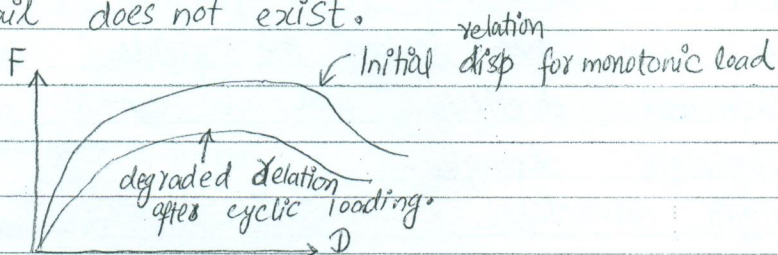 does not exist.
relation
F
Initial disp for monotonic load
degraded relation
after cyclic loading.
D